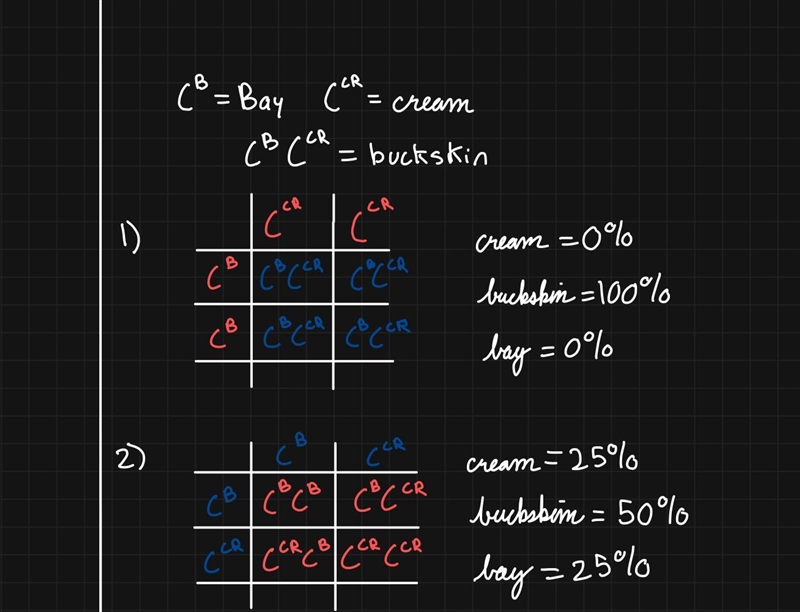 C^B = Bay C^CR = cream
C^B C^CR = buckskin
1)
C^CR C^CR
C^B C^B C^CR C^B C^CR
C^B C^B C^CR C^B C^CR
cream = 0%
buckskin = 100%
bay = 0%
2)
C^B C^CR
C^B C^B C^B C^B C^CR
C^CR C^CR C^B C^CR C^CR
cream = 25%
buckskin = 50%
bay = 25%